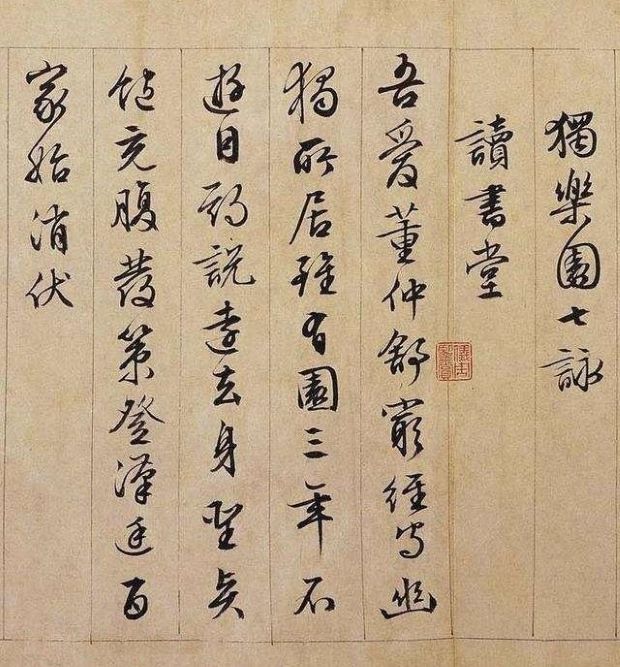 獨樂園七詠
讀書堂
吾愛董仲舒窮經守幽
獨所居雖有園三年不
遊目邪說遠去身聖言
飽充腹發策登漢庭百
家始消伏